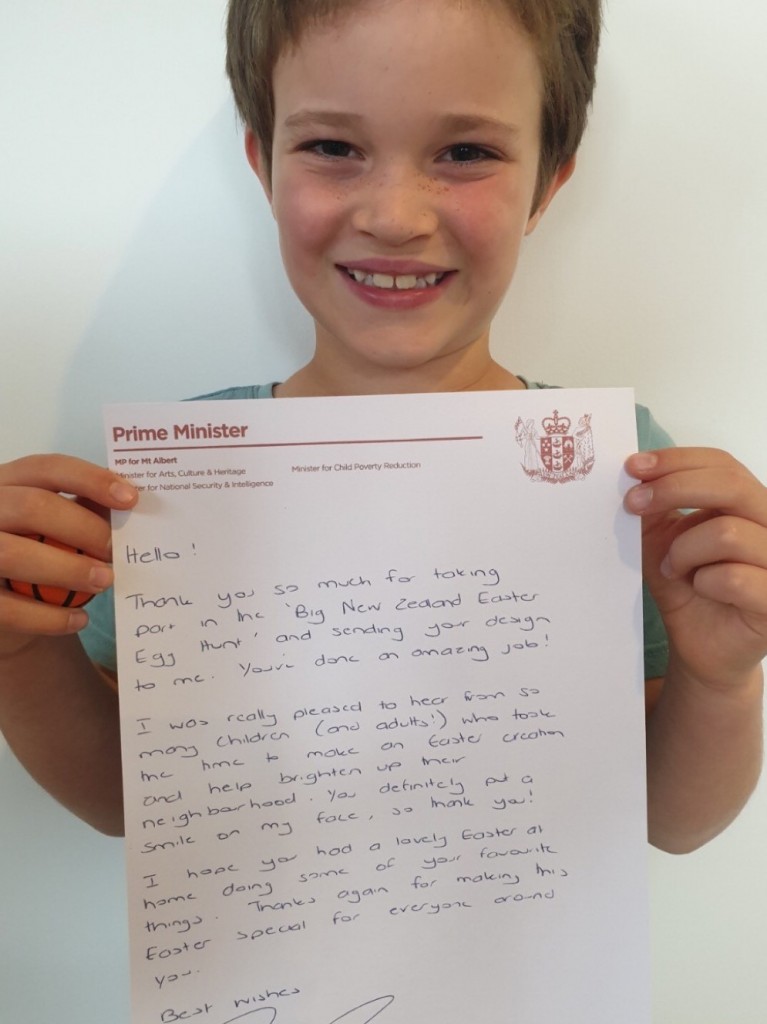 Prime Minister
MP for Mt Albert
Minister for Arts, Culture & Heritage
Minister for Child Poverty Reduction
for National Security & Intelligence
Hello!
Thank you so much for taking
part in the 'Big New Zealand Easter
Egg Hunt' and sending your design
to me. You've done an amazing job!
I was really pleased to hear from so
many children (and adults!) who took
the time to make an Easter creation
and help brighten up their
neighbourhood. You definitely put a
smile on my face, so thank you!
I hope you had a lovely Easter at
home doing some of your favourite
things. Thanks again for making this
Easter special for everyone around
you.
Best wishes